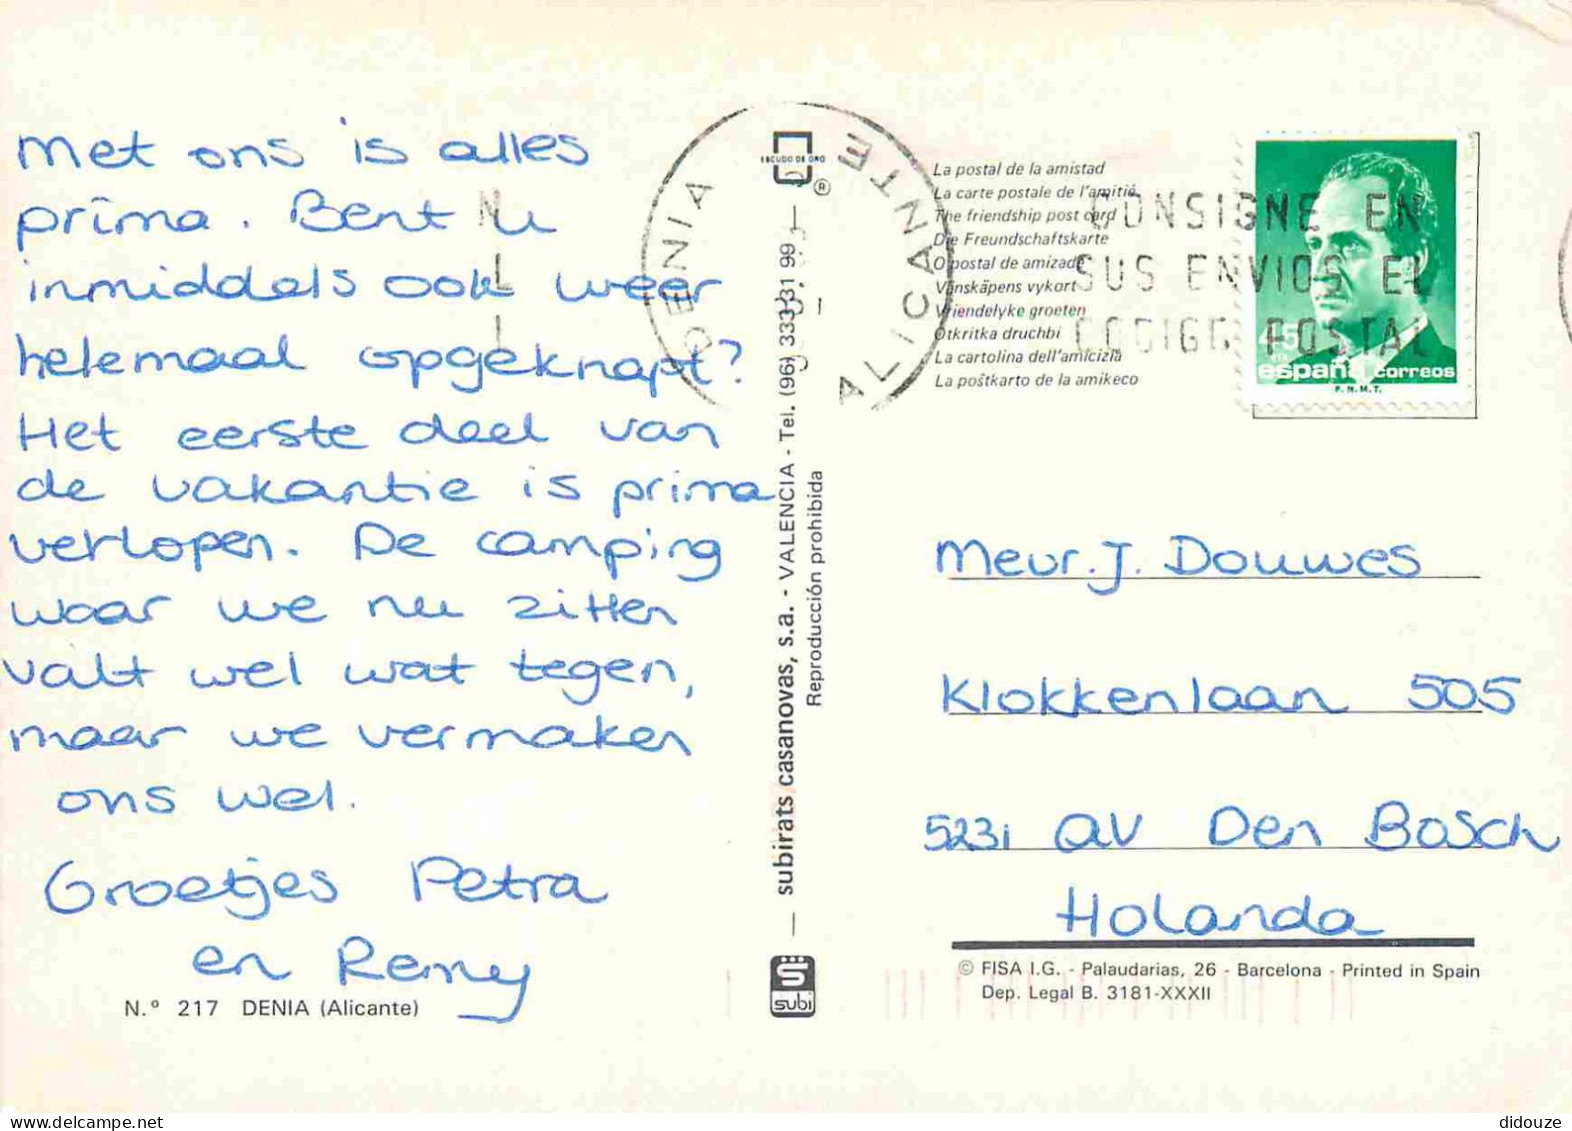 Met ons is alles
prima. Bent u
inmiddels ook weer
helemaal opgeknapt?
Het eerste deel van
de vakantie is prima
verlopen. De camping
waar we nu zitten
valt wel wat tegen,
maar we vermaken
ons wel.
Groetjes Petra
en Remy
N.º 217 DENIA (Alicante)
subirats casanovas, s.a. - VALENCIA - Tel. (96) 333 31 99
Reproducción prohibida
ESCUDO DE ORO
®
subi
DENIA
ALICANTE
La postal de la amistad
La carte postale de l'amitié
The friendship post card
Die Freundschaftskarte
O postal de amizade
Vänskäpens vykort
Vriendelyke groeten
Otkritka druchbi
La cartolina dell'amicizia
La poŝtkarto de la amikeco
CONSIGNE EN
SUS ENVIOS EL
CODIGO POSTAL
45
españa correos
F.N.M.T.
Meur. J. Douwes
Klokkenlaan 505
5231 AV Den Bosch
Holanda
© FISA I.G. - Palaudarias, 26 - Barcelona - Printed in Spain
Dep. Legal B. 3181-XXXII
didouze